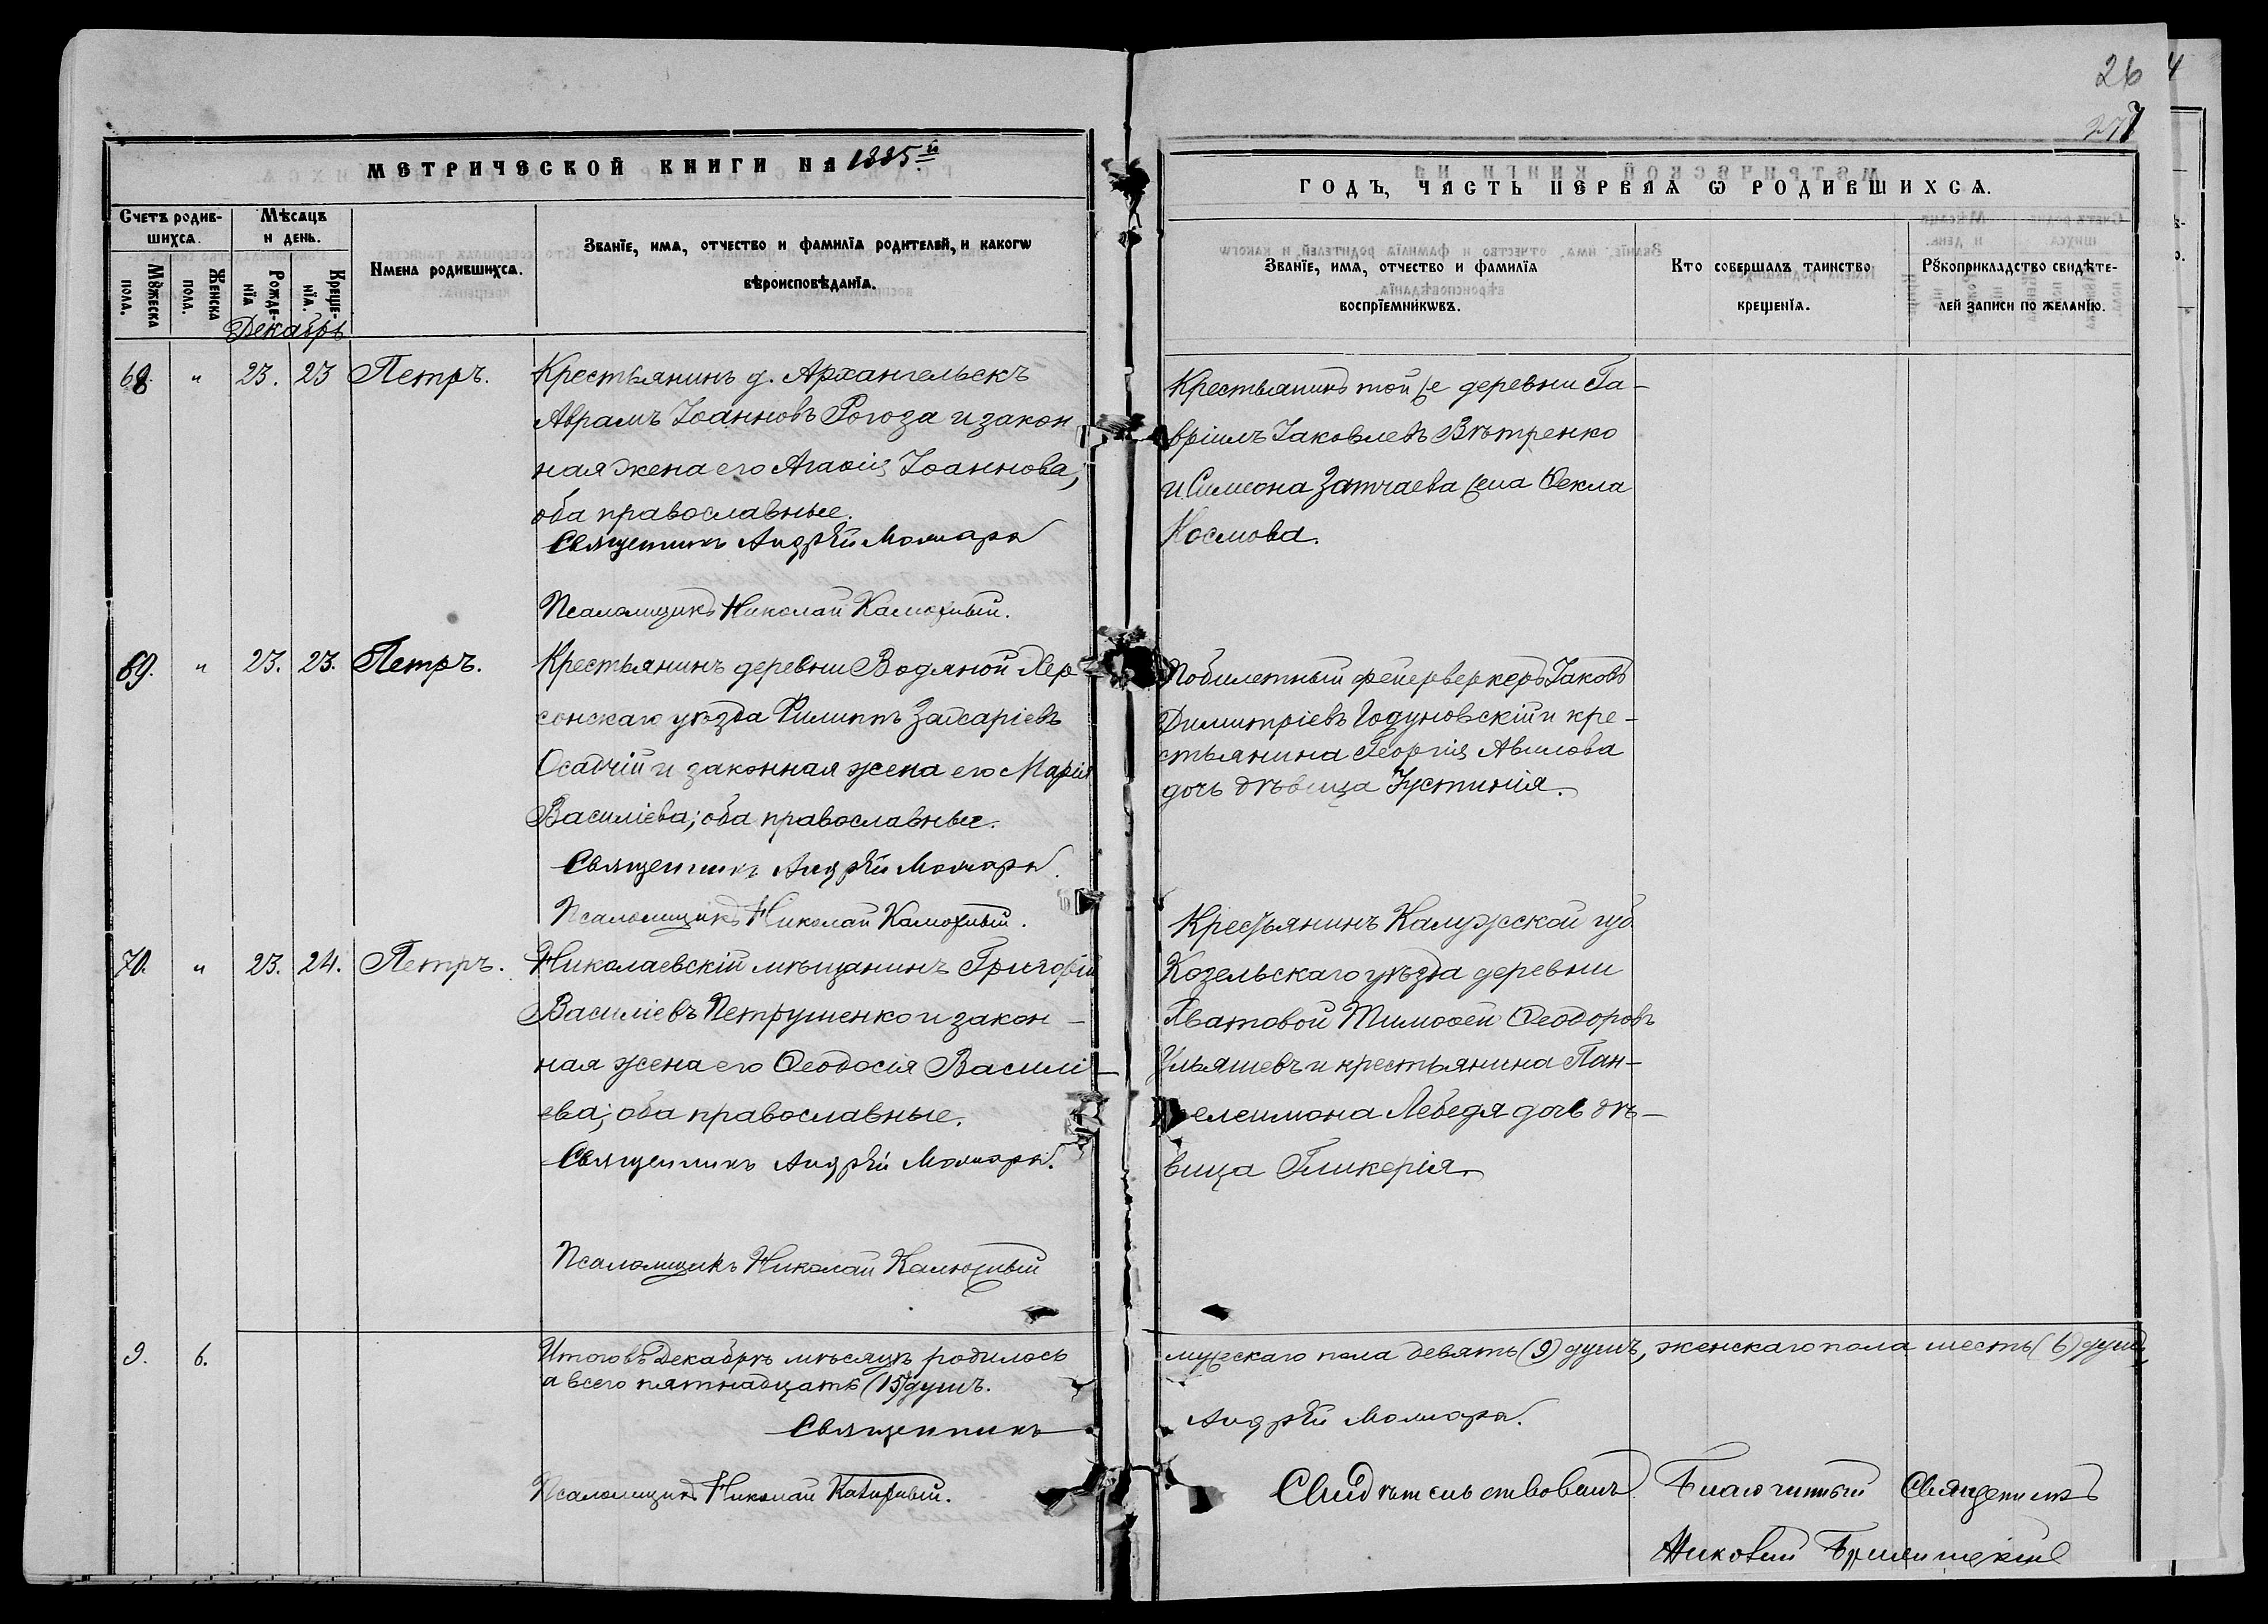 26
27
МЕТРИЧЕСКОЙ КНИГИ НА 1885й
ГОДЪ, ЧАСТЬ ПЕРВАЯ Ѡ РОДИВШИХСЯ.
Счетъ родив-
шихся.
Мѣсяцъ
и день.
Мꙋжеска
пола.
Женска
пола.
Рожде-
нїя
Креще-
нїя.
Имена родившихся.
Званїе, имя, отчество и фамилїа родителей, и какогѡ
вѣроисповѣданїя.
Званїе, имя, отчество и фамилїа
воспрїемникѡвъ.
Кто совершалъ таинство
крещенїя.
Рꙋкоприкладство свидѣте-
лей записи по желанїю.
Декабрь
68. " 23. 23 Петръ.
Крестьянинъ д. Архангельскъ
Аврамъ Іоанновъ Рогоза и закон
ная жена его Агаѳія Іоаннова,
оба православные.
Священникъ Андрей
Псаломщикъ Николай
Крестьянинъ той же деревни Га-
вріилъ Іаковлевъ Вѣтренко
и Симеона жена Ѳекла
Космова.
69. " 23. 23. Петръ.
Крестьянинъ деревни Водяной Хер
сонскаго уѣзда Филиппъ
Осадчій и законная жена его Марія
Василіева; оба православные.
Священникъ Андрей
Псаломщикъ Николай
фейерверкеръ Іаковъ
Димитріевъ Годуновскій и кре-
стьянина Георгія Авилова
дочь дѣвица Іустинія.
70. " 23. 24. Петръ.
Николаевскій мѣщанинъ Григорій
Василіевъ Петрушенко и закон-
ная жена его Ѳеодосія Василі-
ева; оба православные.
Священникъ Андрей
Псаломщикъ Николай
Крестьянинъ Калужской губ.
Козельскаго уѣзда деревни
Хватовой Тимоѳей Ѳеодоровъ
Ульяшевъ и крестьянина Пан-
телеимона Лебедя дочь дѣ-
вица Гликерія.
9. 6. Итого въ Декабрѣ мѣсяцѣ родилось мужскаго пола девять (9) душъ, женскаго пола шесть (6) душъ,
а всего пятнадцать (15) душъ.
Священникъ Андрей
Псаломщикъ Николай
Свидѣтельствовалъ Благочинный Священникъ